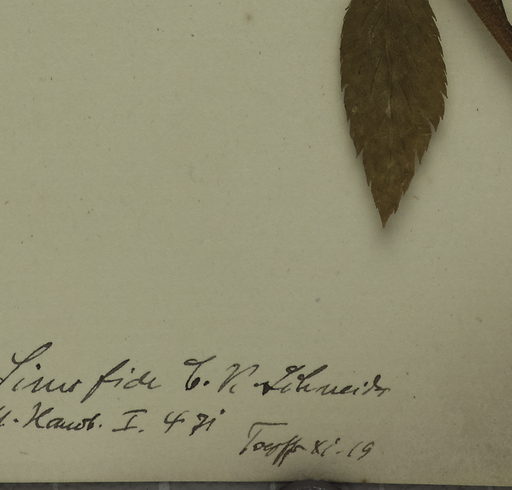 Sims fide C. K. Schneider
Handb. I. 471
Toepffer XI. 19